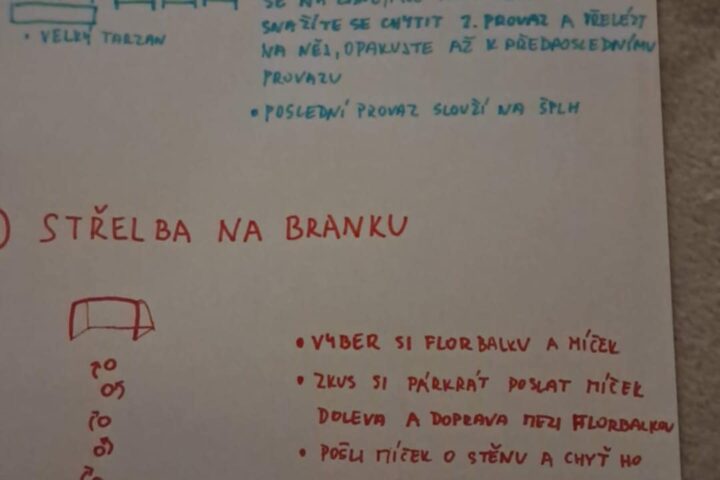 SNAŽÍTE SE CHYTIT 2. PROVAZ A PŘELÉZT
• VELKÝ TARZAN
NA NĚJ, OPAKUJTE AŽ K PŘEDPOSLEDNÍMU
PROVAZU
• POSLEDNÍ PROVAZ SLOUŽÍ NA ŠPLH
) STŘELBA NA BRANKU
• VYBER SI FLORBALKU A MÍČEK
• ZKUS SI PÁRKRÁT POSLAT MÍČEK
DOLEVA A DOPRAVA MEZI FLORBALKOU
• POŠLI MÍČEK O STĚNU A CHYŤ HO